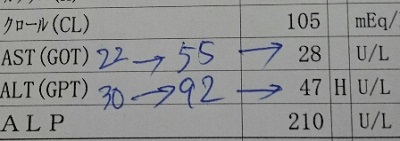 クロール(CL) 105 mEq/
AST(GOT) 22→55→28 U/L
ALT(GPT) 30→92→47 H U/L
ALP 210 U/L